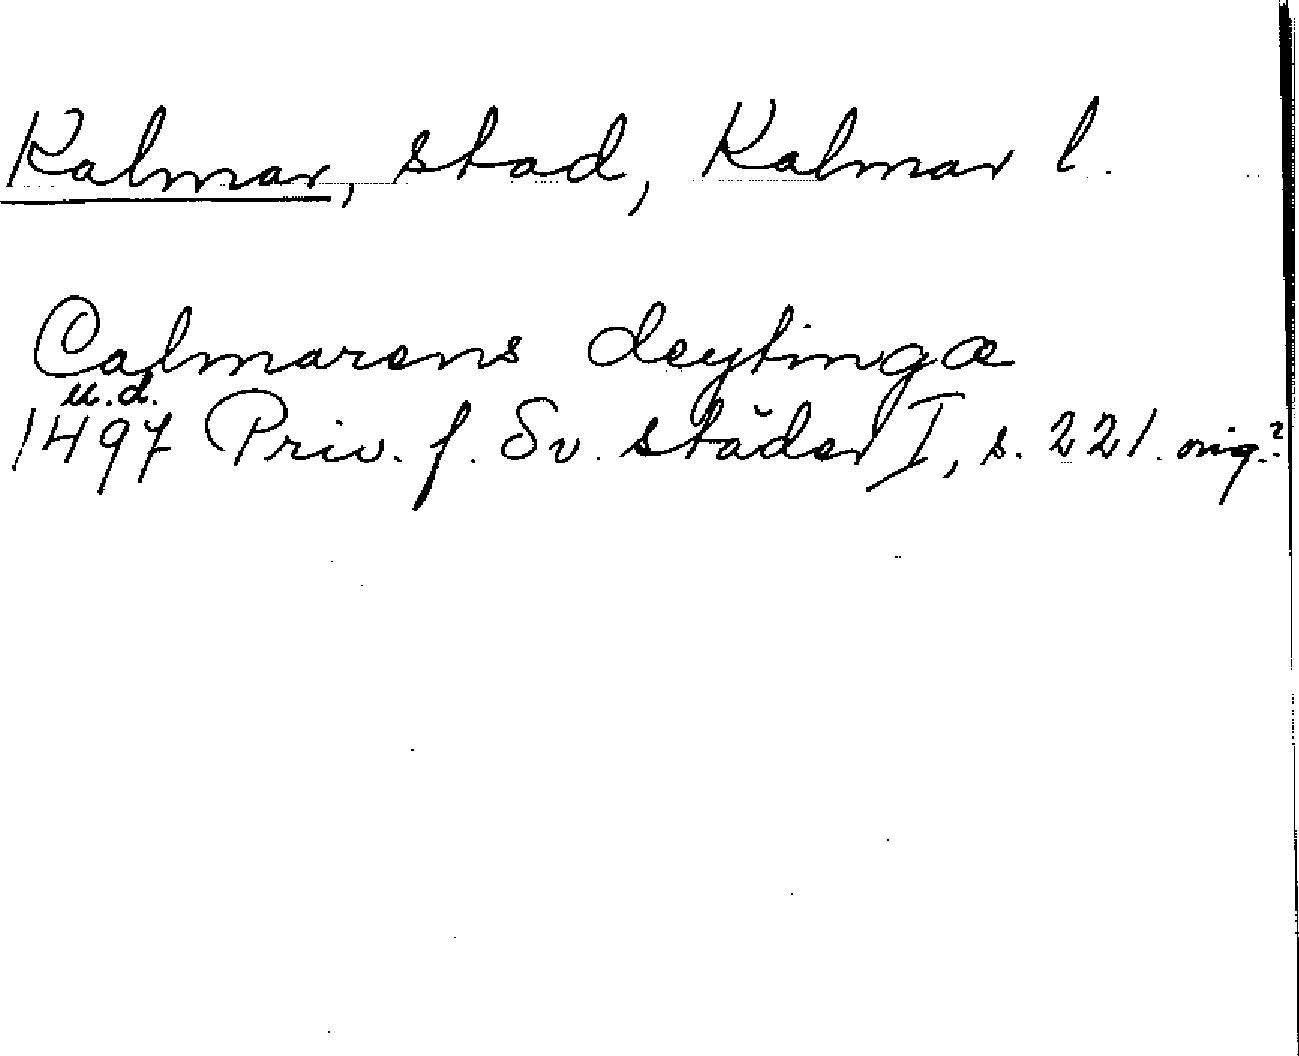 Kalmar, stad, Kalmar l.
Calmarens deytingæ
u.d.
1497 Priv. f. Sv. städer I, s. 221. orig.?